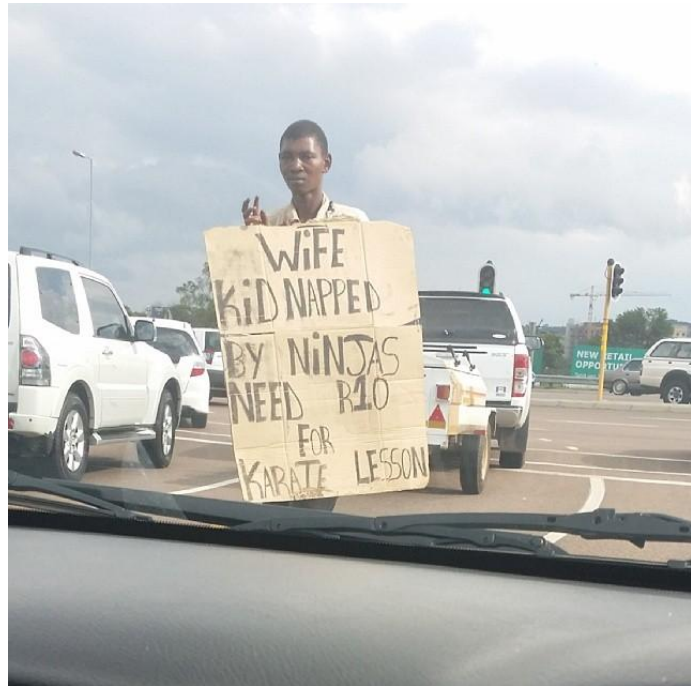 WiFE
KiDNAPPED
BY NiNJAS
NEED R10
FOR
KARATE LESSON
NEW RETAIL
OPPORT